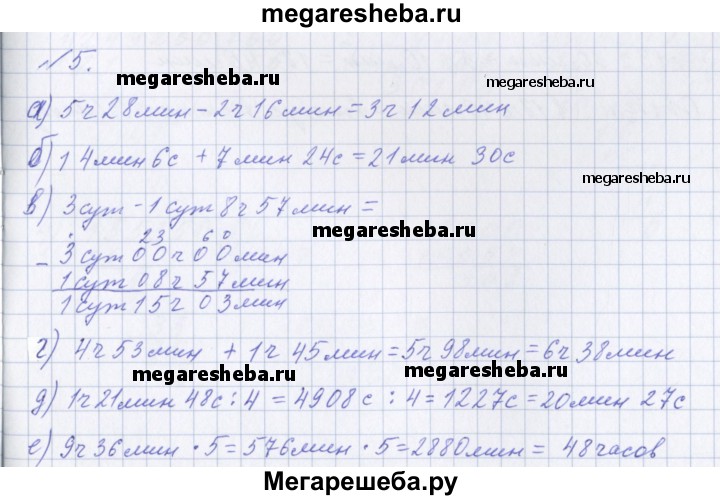 megaresheba.ru
№5.
megaresheba.ru
а) 5ч 28мин - 2ч 16мин = 3ч 12мин
б) 14мин 6с + 7мин 24с = 21мин 30с
megaresheba.ru
в) 3сут - 1сут 8ч 57мин =
megaresheba.ru
23 60
- 3сут 00ч 00мин
1сут 08ч 57мин
1сут 15ч 03мин
г) 4ч 53мин + 1ч 45мин = 5ч 98мин = 6ч 38мин
megaresheba.ru megaresheba.ru
д) 1ч 21мин 48с : 4 = 4908с : 4 = 1227с = 20мин 27с
е) 9ч 36мин · 5 = 576мин · 5 = 2880мин = 48часов
Мегарешеба.ру